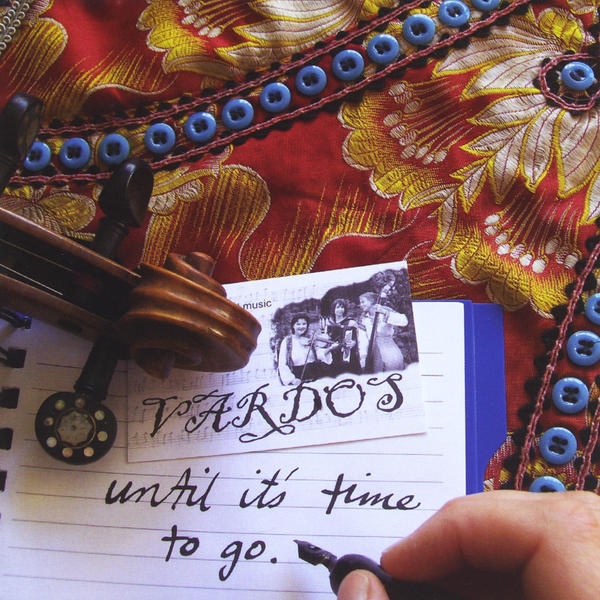 music
VARDOS
until it's time
to go.